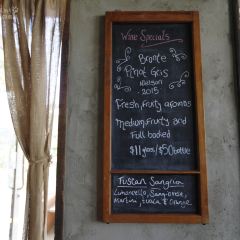 Wine Specials
Bronte
Pinot Gris
Nelson
2015
Fresh, fruity aromas
Medium, fruity and
Full bodied
$11glass/$50bottle
Tuscan Sangria
Limoncello, Sangiovese,
Martini, tuaca & orange